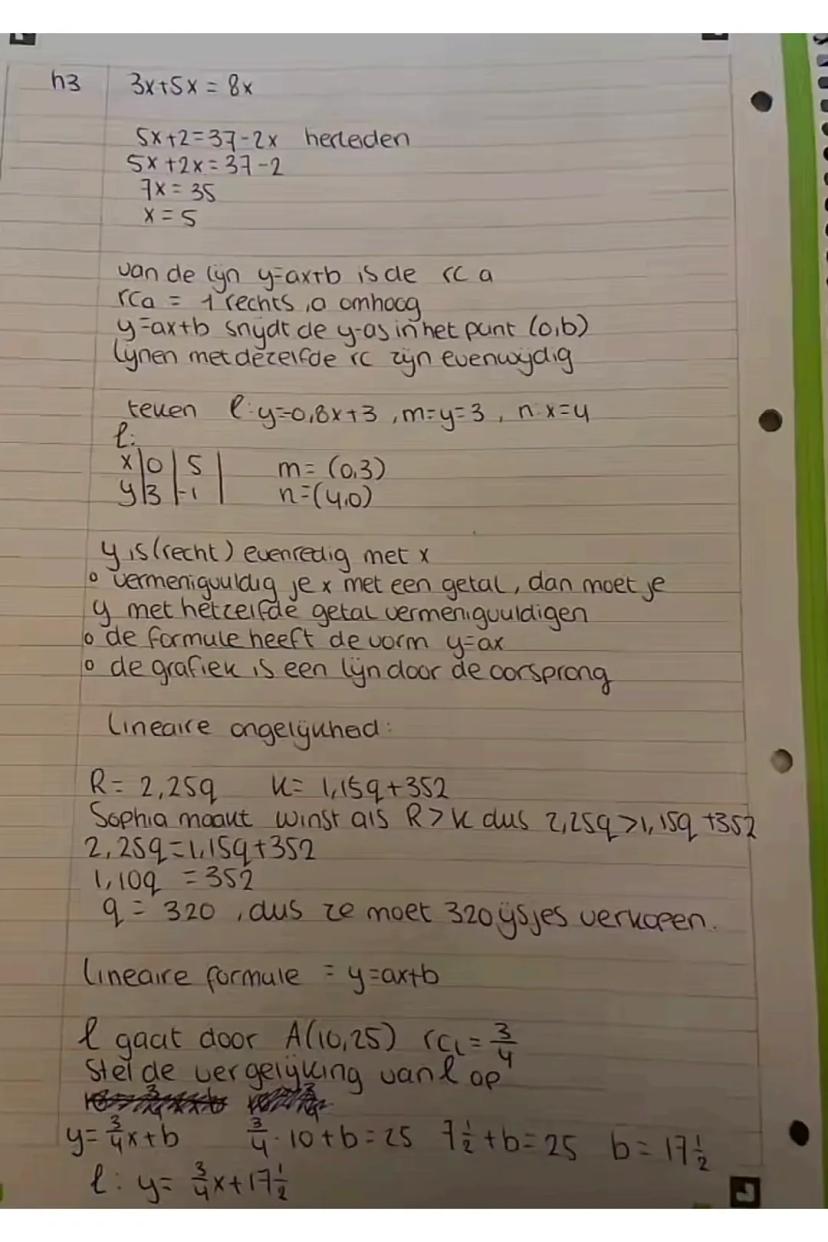 h3 3x+5x = 8x
5x+2=37-2x herleiden
5x+2x=37-2
7x = 35
x = 5
van de lijn y=ax+b is de rc a
rca = 1 rechts, a omhoog
y=ax+b snijdt de y-as in het punt (0,b)
lijnen met dezelfde rc zijn evenwijdig
teken l: y=0,8x+3, m=y=3, n: x=4
l:
x | 0 | 5 | m = (0,3)
y | 3 | -1 | n=(4,0)
y is (recht) evenredig met x
o vermenigvuldig je x met een getal, dan moet je
y met hetzelfde getal vermenigvuldigen
o de formule heeft de vorm y=ax
o de grafiek is een lijn door de oorsprong
lineaire ongelijkheid:
R= 2,25q K= 1,15q+352
Sophia maakt winst als R>K dus 2,25q>1,15q+352
2,25q=1,15q+352
1,10q = 352
q = 320, dus ze moet 320 ijsjes verkopen.
lineaire formule = y=ax+b
l gaat door A(10,25) rcl = 3/4
Stel de vergelijking van l op
y= 3/4x+b 3/4 · 10+b=25 7 1/2+b=25 b=17 1/2
l: y= 3/4x+17 1/2